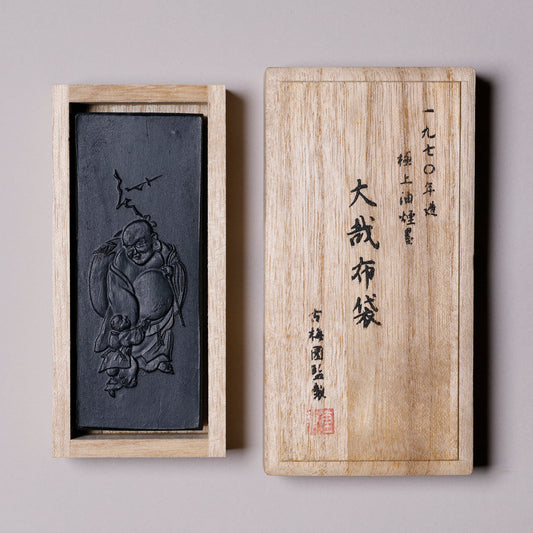 一九七〇年造
極上油煙墨
大哉布袋
古梅園監製